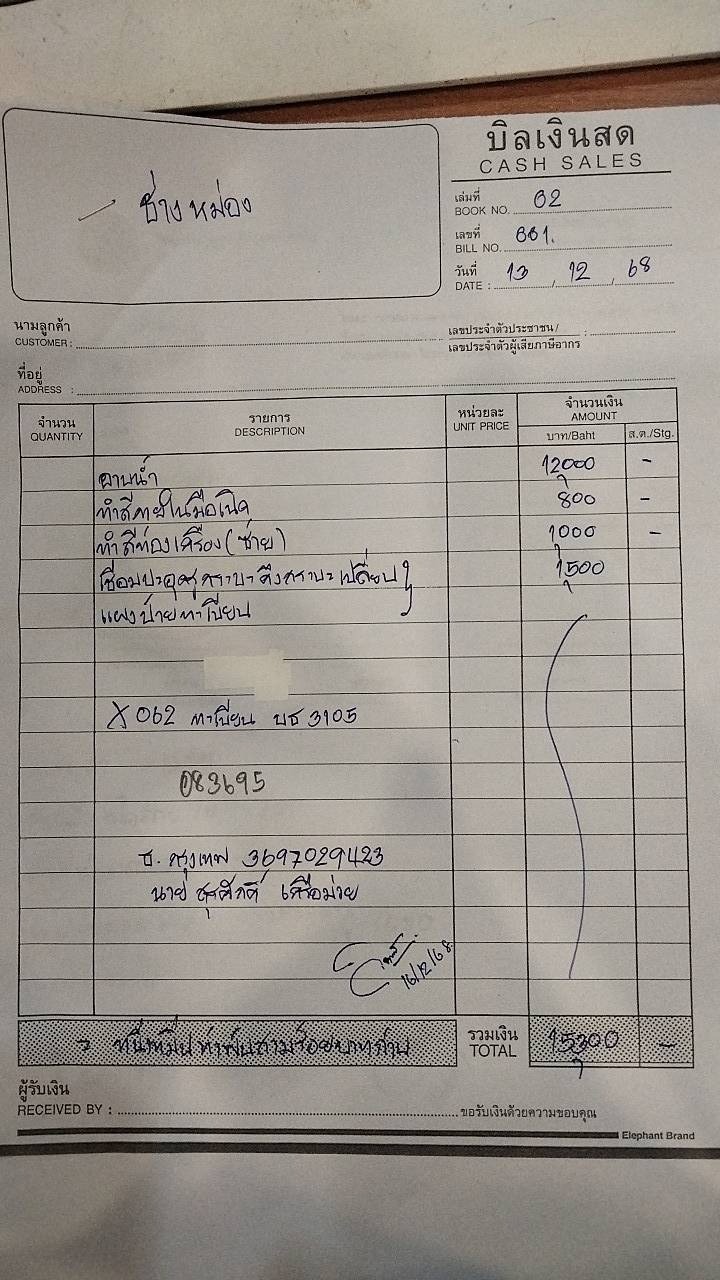 บิลเงินสด
CASH SALES
ช่างหม่อง
เล่มที่
BOOK NO. 02
เลขที่
BILL NO. 001.
วันที่
DATE : 13 / 12 / 68
นามลูกค้า
CUSTOMER :
เลขประจำตัวประชาชน/ :
เลขประจำตัวผู้เสียภาษีอากร
ที่อยู่
ADDRESS :
จำนวน รายการ หน่วยละ จำนวนเงิน
QUANTITY DESCRIPTION UNIT PRICE AMOUNT
บาท/Baht ส.ต./Stg.
12000 -
ทำสีภายใน 800 -
ทำสีห้องเครื่อง (ซ้าย) 1000 -
เชื่อมปะผุ กระบะ เปลี่ยน 1500
แผงป้ายทะเบียน
X 062 ทะเบียน บธ 3105
083695
ธ. กรุงเทพ 3697029423
นาย ชูศักดิ์ เครือม่วย
16/12/68
= หนึ่งหมื่นห้าพันสามร้อยบาทถ้วน
รวมเงิน
TOTAL 15300 -
ผู้รับเงิน
RECEIVED BY : ขอรับเงินด้วยความขอบคุณ
Elephant Brand